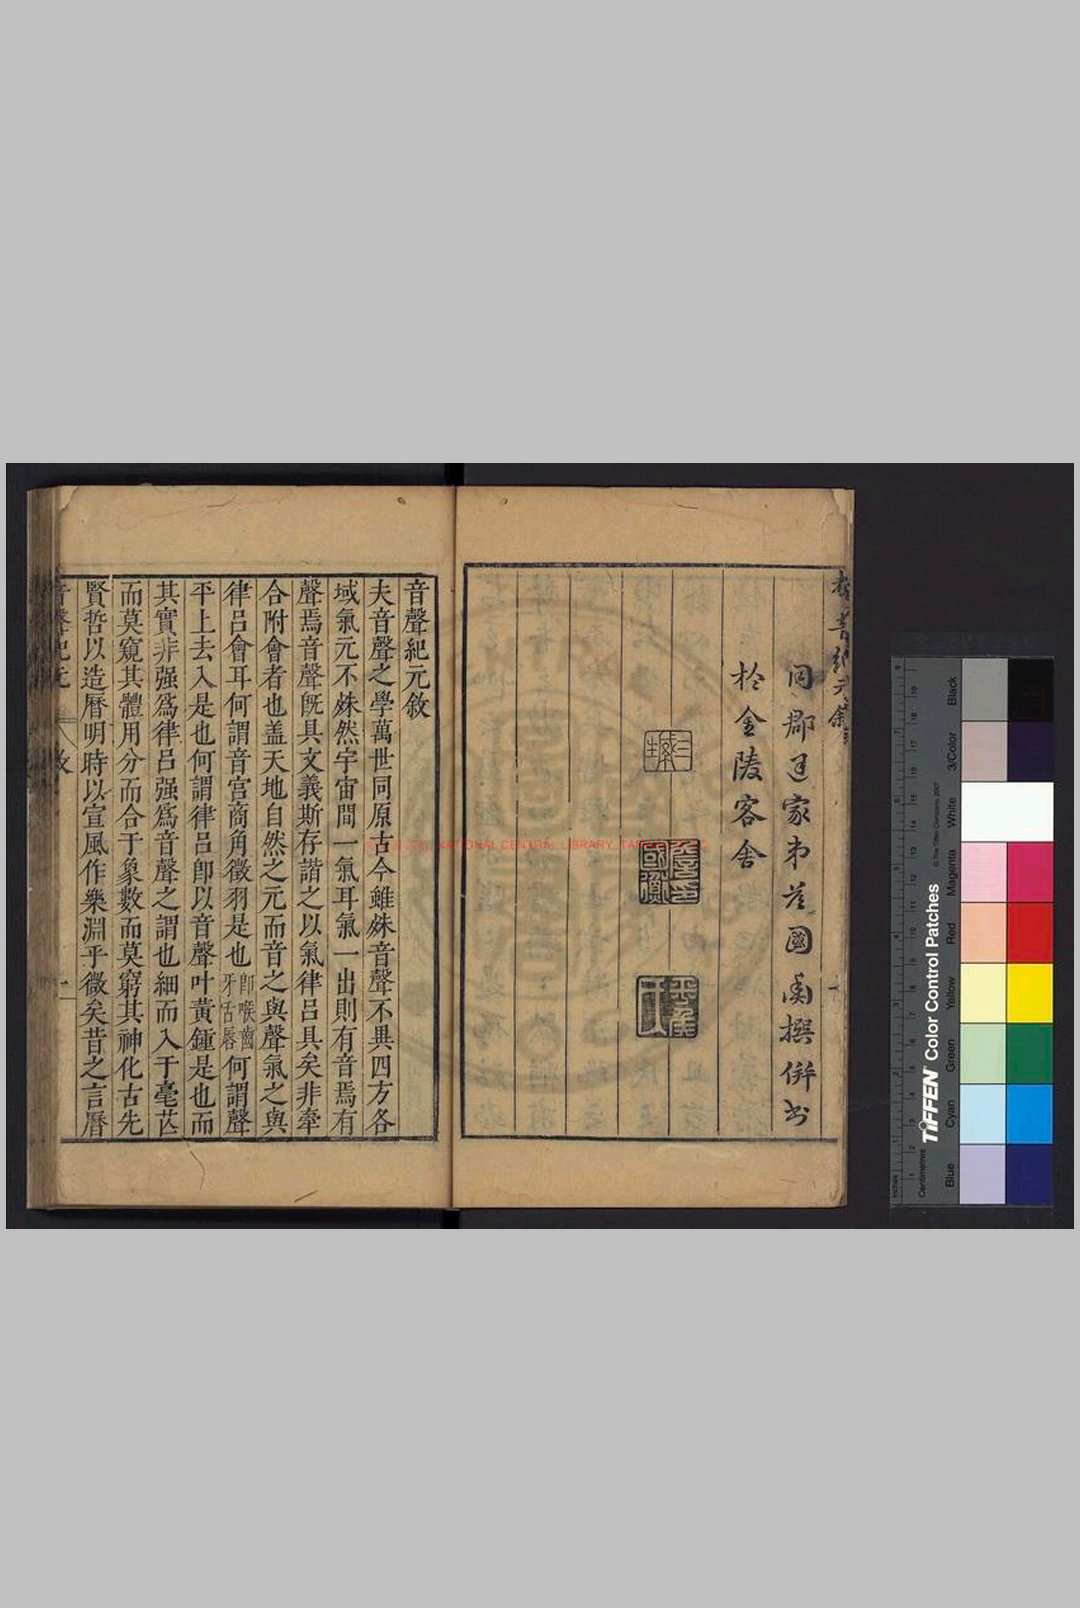 同郡通家弟吳國奇撰併書
於金陵客舍
音聲紀元敘
夫音聲之學萬世同原古今雖殊音聲不異四方各
域氣元不殊然宇宙間一氣耳氣一出則有音焉有
聲焉音聲旣具文義斯存諧之以氣律呂具矣非牽
合附會者也盖天地自然之元而音之與聲氣之與
律呂會耳何謂音宫商角徵羽是也卽喉齒牙舌唇何謂聲
平上去入是也何謂律呂卽以音聲叶黃鍾是也而
其實非强爲律呂强爲音聲之謂也細而入于毫芒
而莫窺其體用分而合于象數而莫窮其神化古先
賢哲以造曆明時以宣風作樂淵乎微矣昔之言曆
音聲紀元 敘 一
NATIONAL CENTRAL LIBRARY
TIFFEN Color Control Patches
© The Tiffen Company, 2007
Centimetres
Inches
Blue Cyan Green Yellow Red Magenta White 3/Color Black